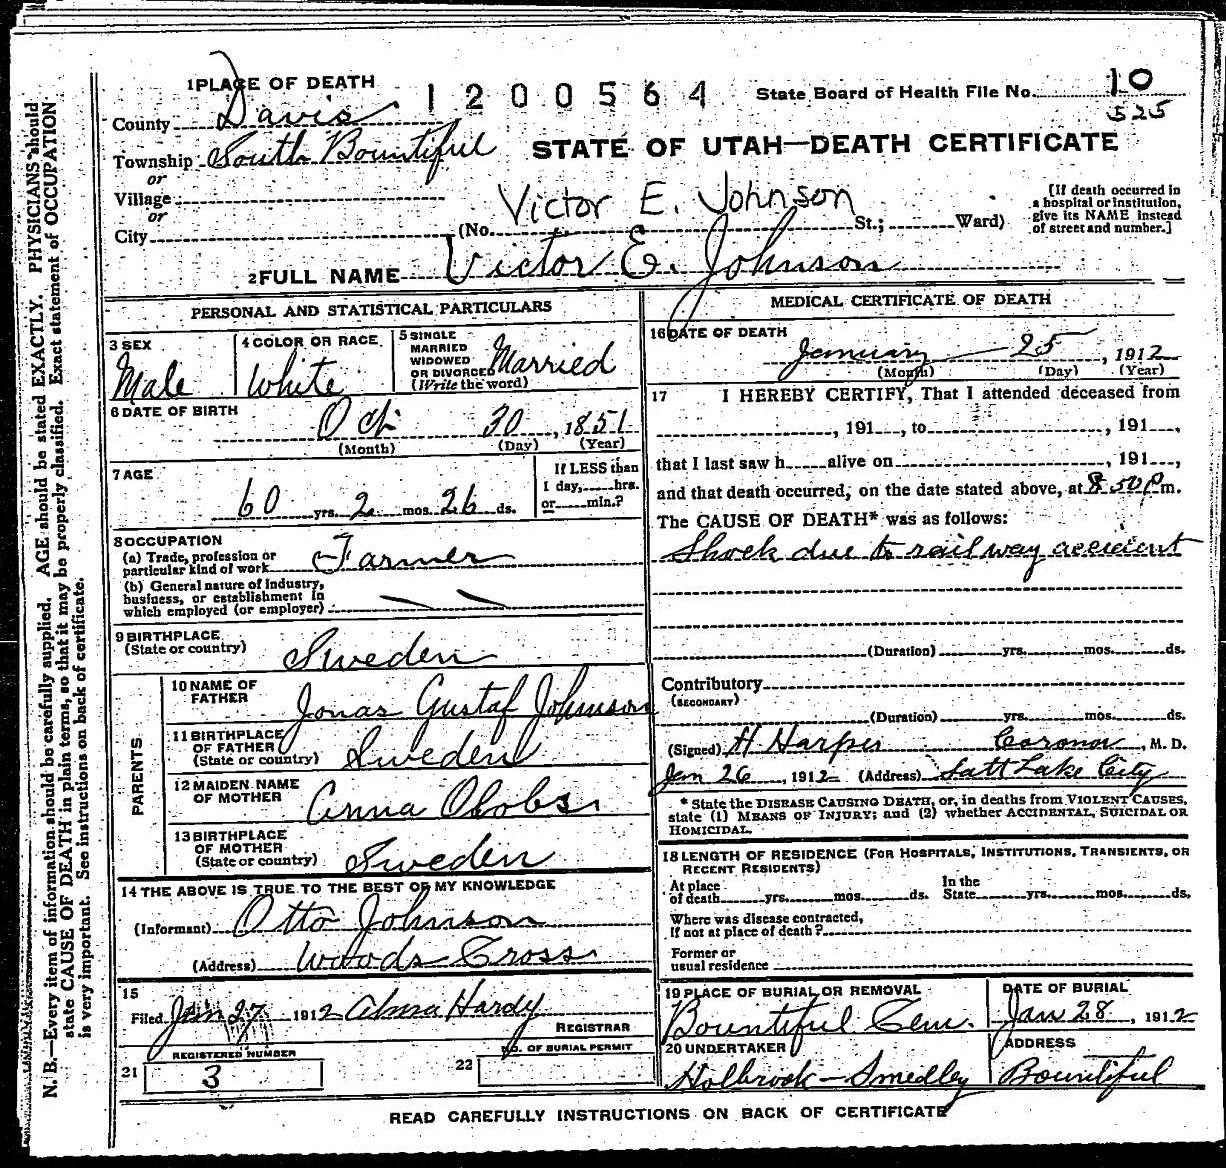 1 PLACE OF DEATH
1200564
State Board of Health File No. 10
525
County Davis
Township South Bountiful
or
Village
or
City
STATE OF UTAH—DEATH CERTIFICATE
Victor E. Johnson
(No. St.; Ward)
[If death occurred in
a hospital or institution,
give its NAME instead
of street and number.]
2 FULL NAME Victor E. Johnson
PERSONAL AND STATISTICAL PARTICULARS
3 SEX
Male
4 COLOR OR RACE
White
5 SINGLE
MARRIED
WIDOWED
OR DIVORCED
(Write the word)
Married
6 DATE OF BIRTH
Oct 30, 1851
(Month) (Day) (Year)
7 AGE
60 yrs. 2 mos. 26 ds.
If LESS than
1 day, hrs.
or min.?
8 OCCUPATION
(a) Trade, profession or
particular kind of work Farmer
(b) General nature of industry,
business, or establishment in
which employed (or employer)
9 BIRTHPLACE
(State or country)
Sweden
PARENTS
10 NAME OF
FATHER
Jonas Gustaf Johnson
11 BIRTHPLACE
OF FATHER
(State or country)
Sweden
12 MAIDEN NAME
OF MOTHER
Anna
13 BIRTHPLACE
OF MOTHER
(State or country)
Sweden
14 THE ABOVE IS TRUE TO THE BEST OF MY KNOWLEDGE
(Informant) Otto Johnson
(Address) Woods Cross
15
Filed Jan 27 1912 Alma Hardy
REGISTRAR
REGISTERED NUMBER
21 3
NO. OF BURIAL PERMIT
22
MEDICAL CERTIFICATE OF DEATH
16 DATE OF DEATH
January 25, 1912
(Month) (Day) (Year)
17 I HEREBY CERTIFY, That I attended deceased from
, 191 , to , 191 ,
that I last saw h alive on , 191 ,
and that death occurred, on the date stated above, at 8 50 P m.
The CAUSE OF DEATH* was as follows:
Shock due to railway accident
(Duration) yrs. mos. ds.
Contributory
(SECONDARY)
(Duration) yrs. mos. ds.
(Signed) H Harper Coronor, M. D.
Jan 26, 1912 (Address) Salt Lake City
* State the DISEASE CAUSING DEATH, or, in deaths from VIOLENT CAUSES,
state (1) MEANS OF INJURY; and (2) whether ACCIDENTAL, SUICIDAL OR
HOMICIDAL.
18 LENGTH OF RESIDENCE (FOR HOSPITALS, INSTITUTIONS, TRANSIENTS, OR
RECENT RESIDENTS)
At place
of death yrs. mos. ds.
In the
State yrs. mos. ds.
Where was disease contracted,
if not at place of death?
Former or
usual residence
19 PLACE OF BURIAL OR REMOVAL
Bountiful Cem.
DATE OF BURIAL
Jan 28, 1912
20 UNDERTAKER
Holbrook-Smedley
ADDRESS
Bountiful
READ CAREFULLY INSTRUCTIONS ON BACK OF CERTIFICATE
N. B.—Every item of information should be carefully supplied. AGE should be stated EXACTLY. PHYSICIANS should
state CAUSE OF DEATH in plain terms, so that it may be properly classified. Exact statement of OCCUPATION
is very important. See instructions on back of certificate.